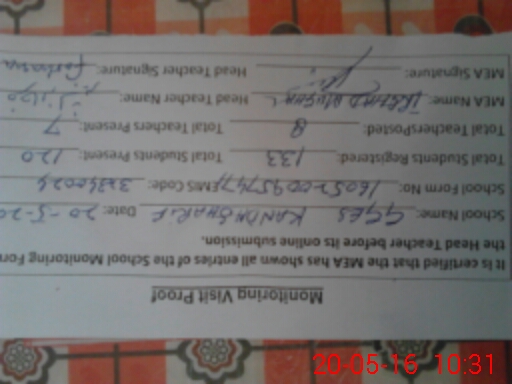 Monitoring Visit Proof
It is certified that the MEA has shown all entries of the School Monitoring Form
the Head Teacher before its online submission.
School Name: GGES KANDHSHARIF Date: 20-5-20
School Form No: EMIS Code:
Total Students Registered: 133 Total Students Present: 120
Total TeachersPosted: 8 Total Teachers Present: 7
MEA Name: Head Teacher Name:
MEA Signature: Head Teacher Signature:
20-05-16 10:31